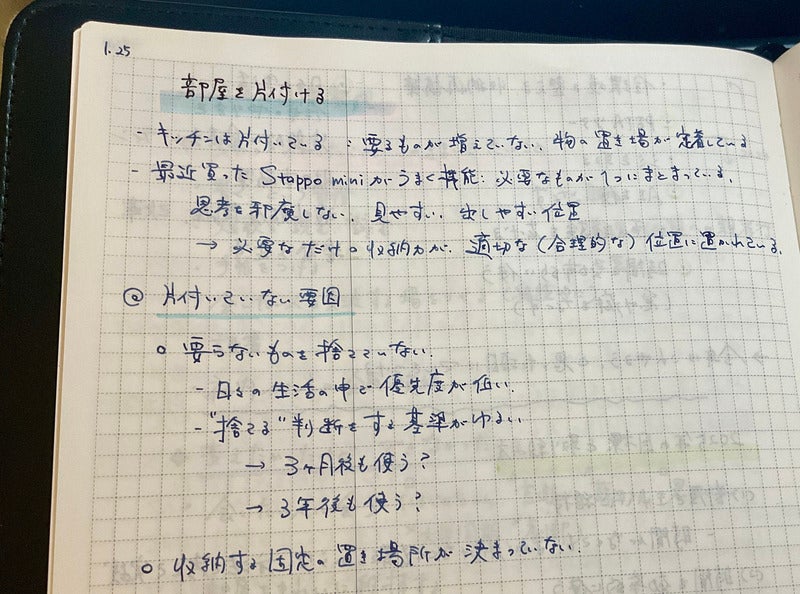 1.25
部屋を片付ける
- キッチンは片付いている : 要るものが増えていない、物の置き場が定着している
- 最近買った Stappo miniがうまく機能: 必要なものが1つにまとまっている、
思考を邪魔しない、見やすい、出しやすい位置
→ 必要なだけの収納力が、適切な(合理的な)位置に置かれている。
@ 片付いていない要因
○ 要らないものを捨てていない
- 日々の生活の中で優先度が低い
- "捨てる"判断をする基準がゆるい
→ 3ヶ月後も使う?
→ 3年後も使う?
○ 収納する固定の置き場所が決まっていない